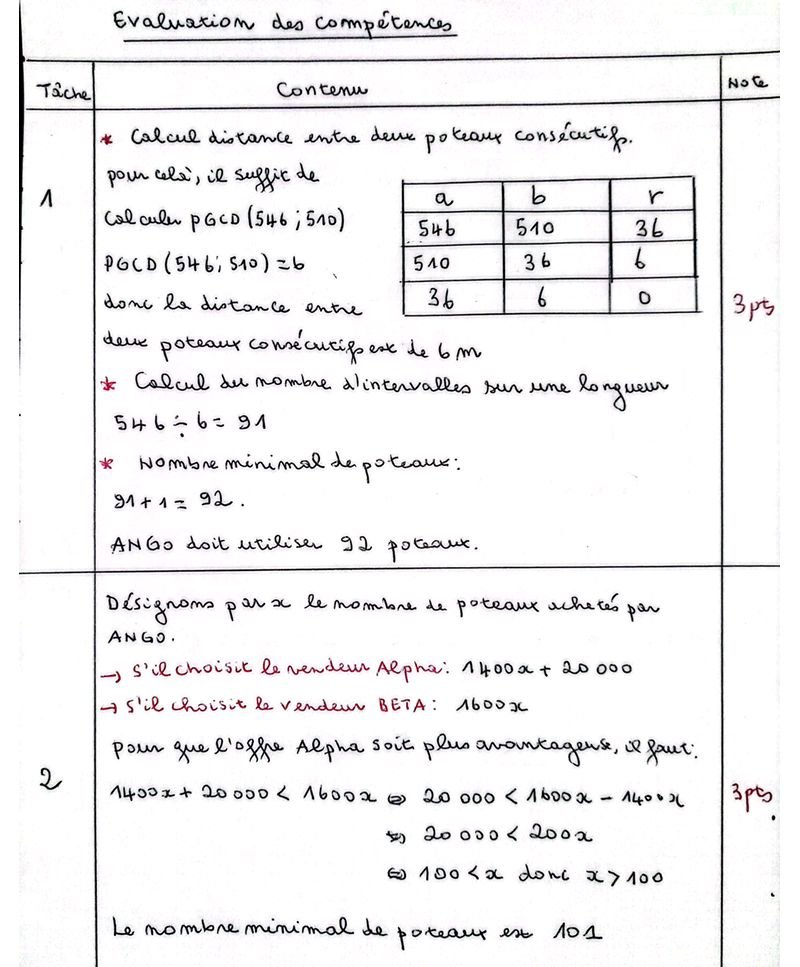 Evaluation des compétences
Tâche Contenu Note
* Calcul distance entre deux poteaux consécutifs.
pour celà, il suffit de
Calculer PGCD(546 ; 510)
PGCD(546 ; 510) = 6
donc la distance entre
deux poteaux consécutifs est de 6 m
a b r
546 510 36
510 36 6
36 6 0
1
3pts
* Calcul du nombre d'intervalles sur une longueur
546 ÷ 6 = 91
* Nombre minimal de poteaux :
91 + 1 = 92.
ANGO doit utiliser 92 poteaux.
Désignons par x le nombre de poteaux achetés par
ANGO.
→ S'il choisit le vendeur Alpha : 1400x + 20 000
→ S'il choisit le vendeur BETA : 1600x
pour que l'offre Alpha soit plus avantageuse, il faut :
2
3pts
1400x + 20 000 < 1600x ⇔ 20 000 < 1600x - 1400x
⇔ 20 000 < 200x
⇔ 100 < x donc x > 100
Le nombre minimal de poteaux est 101